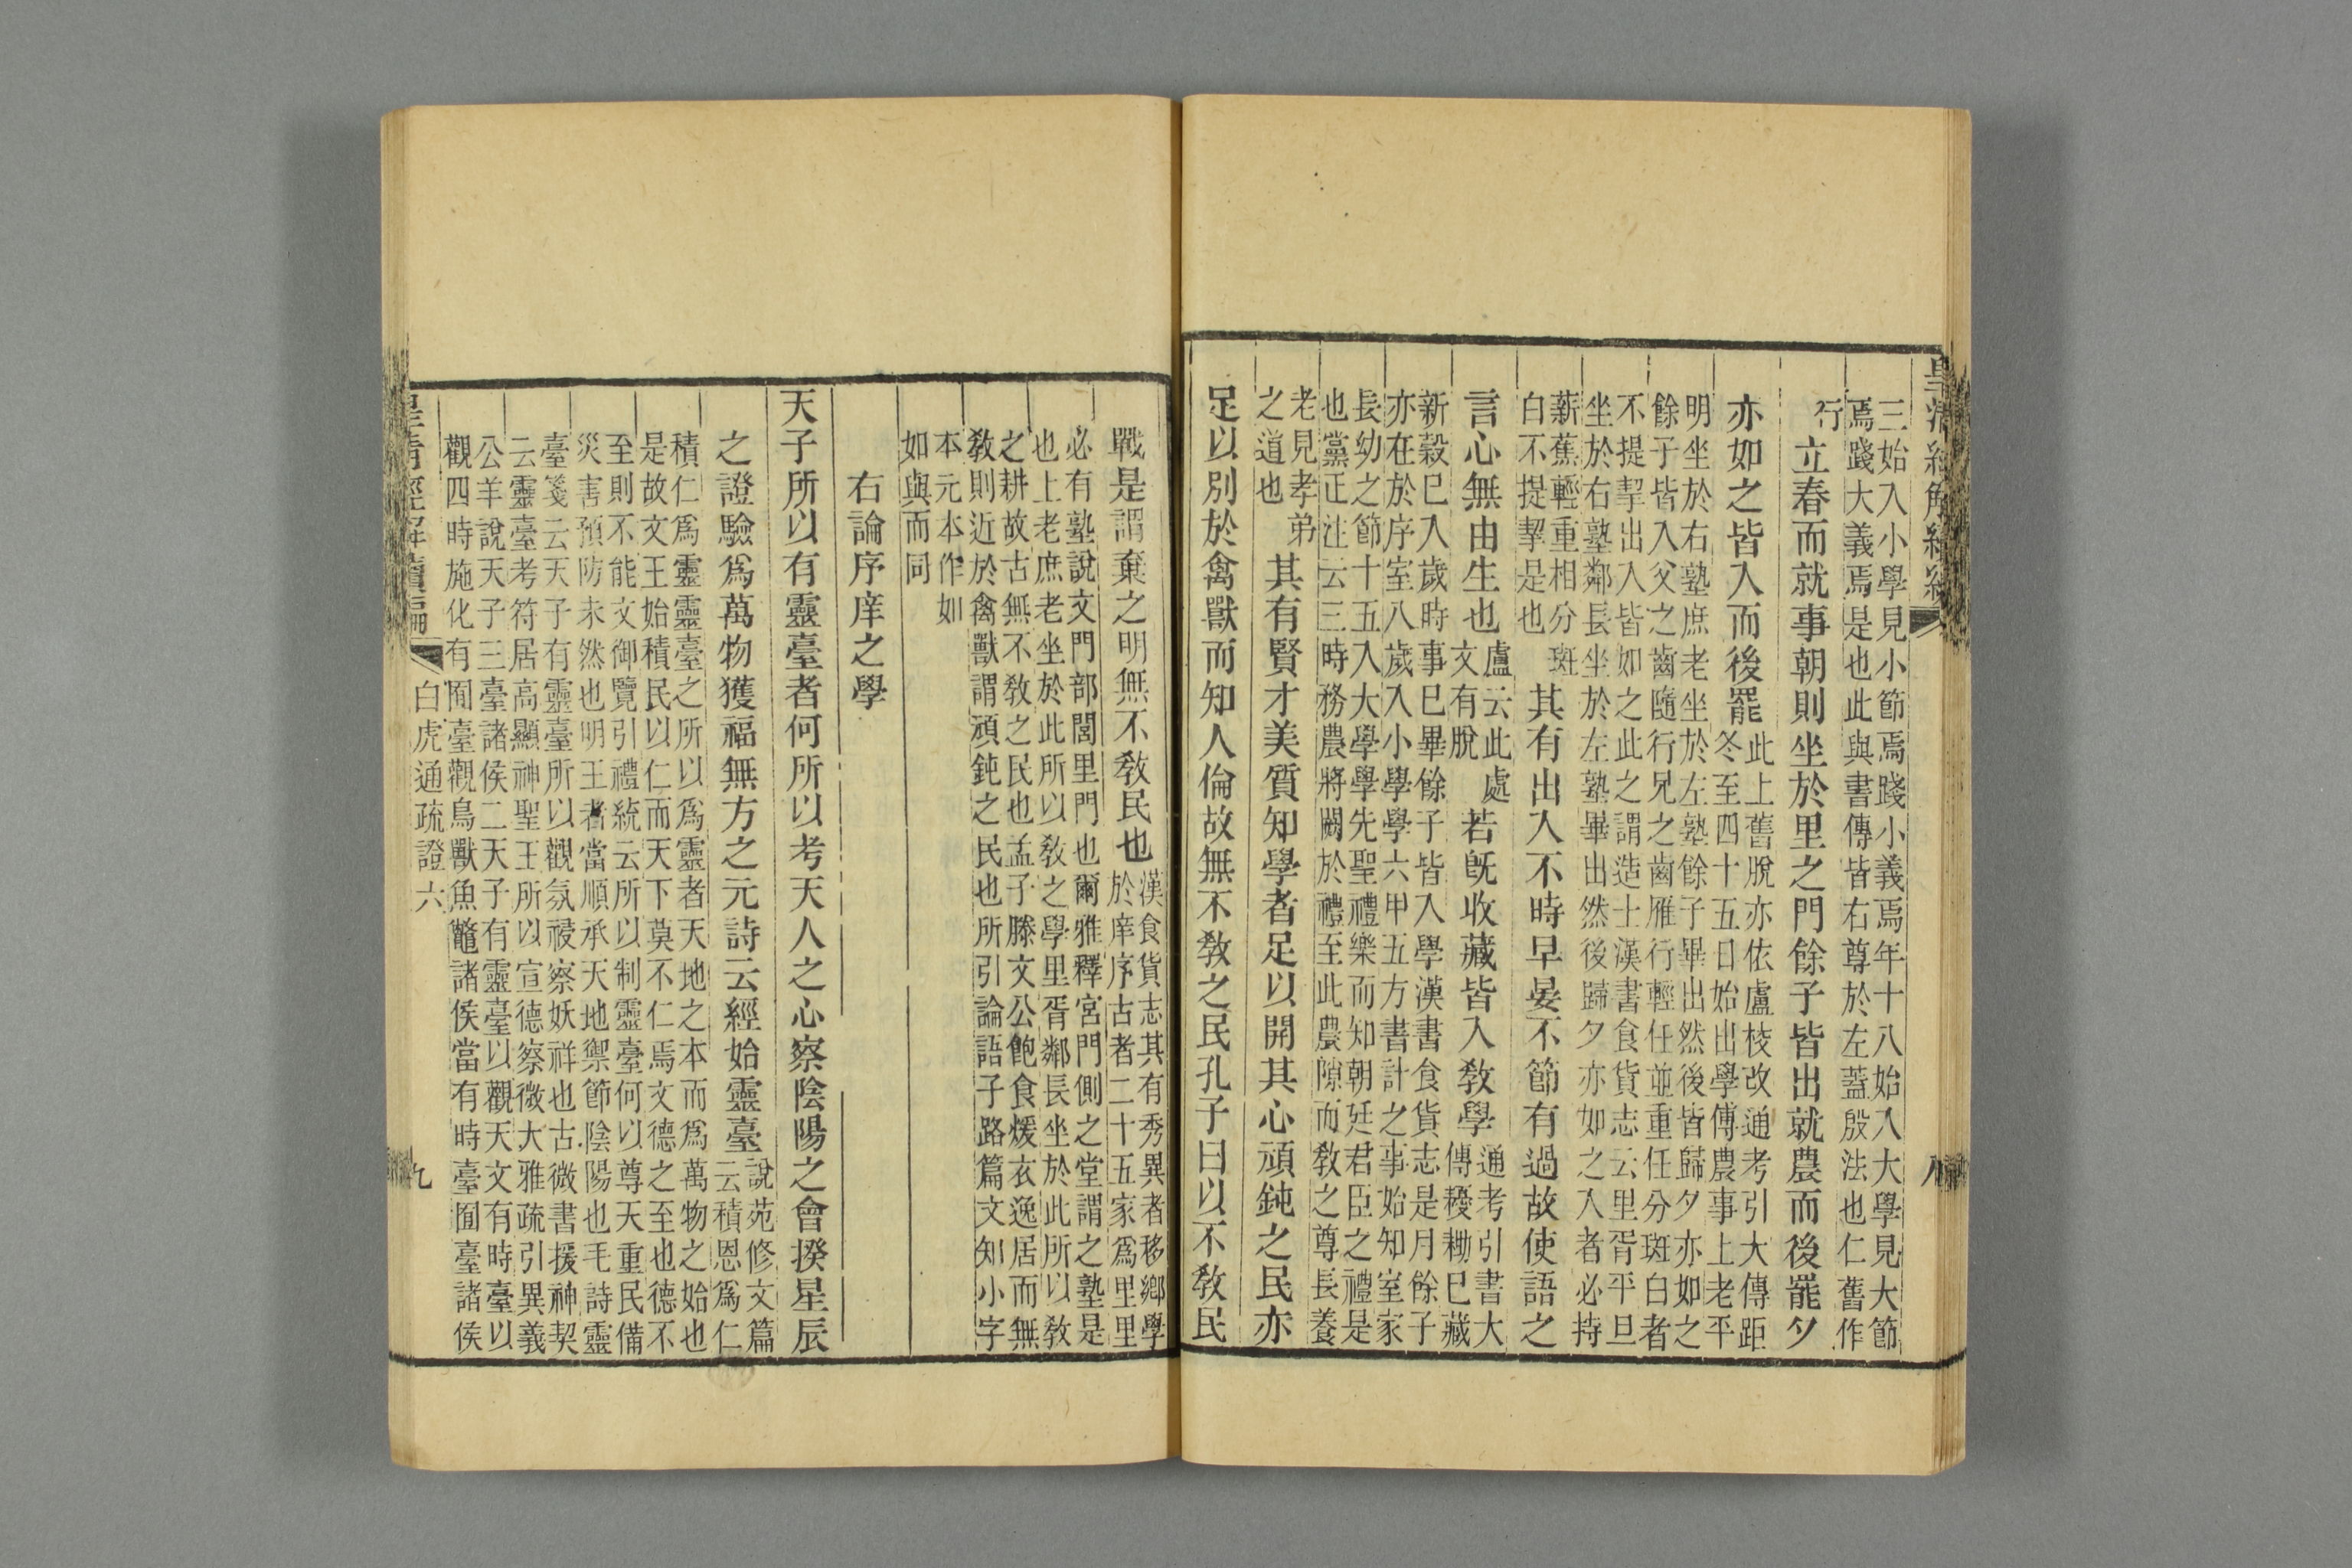 皇清經解續編
八
三始入小學見小節焉踐小義焉年十八始入大學見大節
焉踐大義焉是也此與書傳皆右尊於左蓋殷法也仁舊作
行
立春而就事朝則坐於里之門餘子皆出就農而後罷夕
亦如之皆入而後罷
此上舊脫亦依盧校改通考引大傳距
冬至四十五日始出學傅農事上老平
明坐於右塾庶老坐於左塾餘子畢出然後皆歸夕亦如之
餘子皆入父之齒隨行兄之齒雁行輕任並重任分斑白者
不提挈出入皆如之此之謂造士漢書食貨志云里胥平旦
坐於右塾鄰長坐於左塾畢出然後歸夕亦如之入者必持
薪蕉輕重相分斑
白不提挈是也
其有出入不時早晏不節有過故使語之
言心無由生也
盧云此處
文有脫
若旣收藏皆入敎學
通考引書大
傳耰耡巳藏
新穀巳入歲時事巳畢餘子皆入學漢書食貨志是月餘子
亦在於序室八歲入小學學六甲五方書計之事始知室家
長幼之節十五入大學學先聖禮樂而知朝廷君臣之禮是
也黨正注云三時務農將闕於禮至此農隙而敎之尊長養
老見孝弟
之道也
其有賢才美質知學者足以開其心頑鈍之民亦
足以別於禽獸而知人倫故無不敎之民孔子曰以不敎民
戰是謂棄之明無不敎民也
漢食貨志其有秀異者移鄕學
於庠序古者二十五家爲里里
必有塾說文門部閭里門也爾雅釋宮門側之堂謂之塾是
也上老庶老坐於此所以敎之學里胥鄰長坐於此所以敎
之耕故古無不敎之民也孟子滕文公飽食煖衣逸居而無
敎則近於禽獸謂頑鈍之民也所引論語子路篇文知小字
本元本作如
如與而同
右論序庠之學
天子所以有靈臺者何所以考天人之心察陰陽之會揆星辰
之證驗爲萬物獲福無方之元詩云經始靈臺
說苑修文篇
云積恩爲仁
積仁爲靈靈臺之所以爲靈者天地之本而爲萬物之始也
是故文王始積民以仁而天下莫不仁焉文德之至也德不
至則不能文御覽引禮統云所以制靈臺何以尊天重民備
災害預防未然也明王者當順承天地禦節陰陽也毛詩靈
臺箋云天子有靈臺所以觀氛祲察妖祥也古微書援神契
云靈臺考符居高顯神聖王所以宣德察微大雅疏引異義
公羊說天子三臺諸侯二天子有靈臺以觀天文有時臺以
觀四時施化有囿臺觀鳥獸魚鼈諸侯當有時臺囿臺諸侯
皇清經解續編
白虎通疏證六
九